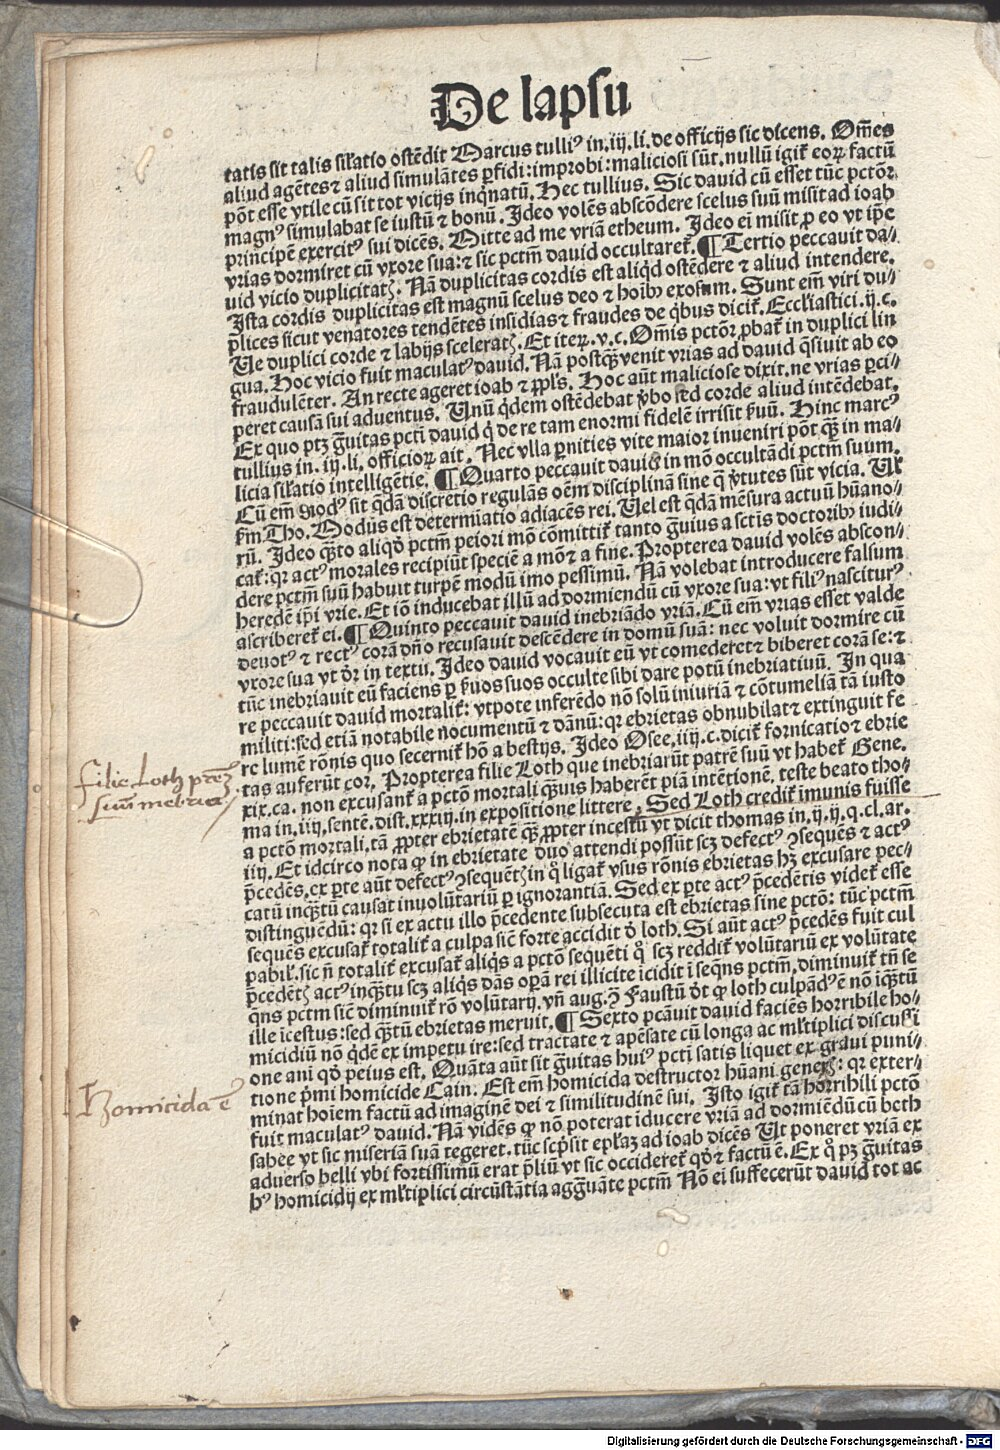 De lapsu
tatis sit talis sil'atio ostēdit Marcus tulliꝰ in.iij.li.de officijs sic dicens. Om̄es
aliud agētes ⁊ aliud simulātes ꝑfidi:improbi:maliciosi sūt.nullū igit̃ eoꝝ factū
pōt esse vtile cū sit tot vicijs inq̇natū. Hec tullius. Sic dauid cū esset tūc pctōr
magnꝰ simulabat se iustū ⁊ bonū. Ideo volēs abscōdere scelus suū misit ad ioab
principē exercitꝰ sui dicēs. Mitte ad me vriā etheum. Ideo ei misit ꝓ eo vt ip̄e
vrias dormiret cū vxore sua:⁊ sic pctm̄ dauid occultaret̃. ¶ Tertio peccauit da//
uid vicio duplicitatꝭ. Nā duplicitas cordis est aliq̇d ostēdere ⁊ aliud intendere.
Ista cordis duplicitas est magnū scelus deo ⁊ hoībꝰ exosum. Sunt em̄ viri du//
plices sicut venatores tendētes insidias ⁊ fraudes de q̇bus dicit̃. Eccl'iastici.ij.c.
Ue duplici corde ⁊ labijs sceleratꝭ. Et iteꝝ.v.c.Om̄is pctōr ꝓbat̃ in duplici lin
gua. Hoc vicio fuit maculatꝰ dauid. Nā postqꝫ̄ venit vrias ad dauid q̄siuit ab eo
fraudulēter. An recte ageret ioab ⁊ ppl's. Hoc aūt maliciose dixit.ne vrias ꝑci//
peret causā sui aduentus. Unū q̇dem ostēdebat ꝟbo sed corde aliud intēdebat.
Ex quo ptꝫ g̃uitas pcti dauid q̇ de re tam enormi fidelē irrisit ẜuū. Hinc marcꝰ
tullius in.iij.li. officioꝝ ait. Nec vlla ꝑnities vite maior inueniri pōt qꝫ̄ in ma//
licia sil'atio intelligētie. ¶ Quarto peccauit dauid in mō occultādi pctm̄ suum.
Cū em̄ modꝰ sit q̄dā discretio regulās oēm disciplinā sine q̄ ꝟtutes sūt vicia. Ul'
ẜm Tho. Modus est determīatio adiacēs rei. Uel est q̄dā mēsura actuū hūano//
rū. Ideo q̄to aliqḋ pctm̄ peiori mō cōmittit̃ tanto g̃uius a sctīs doctoribꝰ iudi//
cat̃:qr actꝰ morales recipiūt speciē a mō ⁊ a fine. Propterea dauid volēs abscon//
dere pctm̄ suū habuit turpē modū imo pessimū. Nā volebat introducere falsum
heredē ip̄i vrie. Et iō inducebat illū ad dormiendū cū vxore sua:vt filiꝰ nasciturꝰ
ascriberet̃ ei. ¶ Quinto peccauit dauid inebriādo vriā. Cū em̄ vrias esset valde
deuotꝰ ⁊ rectꝰ corā dn̄o recusauit descēdere in domū suā: nec voluit dormire cū
vxore sua vt ḋr in textu. Ideo dauid vocauit eū vt comederet ⁊ biberet corā se:⁊
tūc inebriauit eū faciens ꝑ ẜuos suos occulte sibi dare potū inebriatiuū. In qua
re peccauit dauid mortalit̃: vtpote inferēdo nō solū iniuriā ⁊ cōtumeliā tā iusto
militi:sed etiā notabile nocumentū ⁊ dānū:qr ebrietas obnubilat ⁊ extinguit fe
re lumē rōnis quo secernit̃ hō a bestijs. Ideo Osee.iiij.c.dicit̃ fornicatio ⁊ ebrie
tas auferūt cor. Propterea filie Loth que inebriarūt patrē suū vt habet̃ Gene.
xix.ca. non excusant̃ a pctō mortali qꝫ̄uis haberēt piā intentionē, teste beato tho//
ma in.iiij.sentē.dist.xxxiij.in expositione littere. Sed Loth credit̃ imunis fuisse
a pctō mortali,tā ꝓpter ebrietatē qꝫ̄ ꝓpter incestū vt dicit thomas in.ij.ij.q.cl.ar.
iiij. Et idcirco nota ꝙ in ebrietate duo attendi possūt scꝫ defectꝰ ꝯsequēs ⁊ actꝰ
p̄cedēs.ex ꝑte aūt defectꝰ ꝯsequētꝭ in q̊ ligat̃ vsus rōnis ebrietas hꝫ excusare pec//
catū inqꝫ̄tū causat inuolūtariū ꝑ ignorantiā. Sed ex ꝑte actꝰ p̄cedētis videt̃ esse
distinguēdū: qr si ex actu illo p̄cedente subsecuta est ebrietas sine pctō: tūc pctm̄
sequēs excusat̃ totalit̃ a culpa sic̄ forte accidit ḋ loth. Si aūt actꝰ p̄cedēs fuit cul
pabil'.sic n̄ totalit̃ excusat̃ aliq̇s a pctō sequēti q̊ scꝫ reddit̃ volūtariū ex volūtate
p̄cedētꝭ actꝰ inqꝫ̄tū scꝫ aliq̇s dās operā rei illicite īcidit ī seqn̄s pctm̄.diminuit̃ tn̄ se
qn̄s pctm̄ sic̄ diminuit̃ rō volūtarij.vn̄ aug.ꝯ̄ Faustū ḋt ꝙ loth culpādꝰ ē nō īqꝫ̄tū
ille īcestus:sed qꝫ̄tū ebrietas meruit. ¶ Sexto pcāuit dauid faciēs horribile ho//
micidiū nō q̇dē ex impetu ire:sed tractate ⁊ apēsate cū longa ac ml'tiplici discussi
one ani qḋ peius est. Quāta aūt sit g̃uitas huiꝰ pcti satis liquet ex graui puni//
tione p̄mi homicide Cain. Est em̄ homicida destructor hūani generꝭ: qr exter//
minat hoiem factū ad imaginē dei ⁊ similitudinē sui. Isto igit̃ tā horribili pctō
fuit maculatꝰ dauid. Nā vidēs ꝙ nō poterat īducere vriā ad dormiēdū cū beth
sabee vt sic miseriā suā tegeret.tūc scp̄sit epl'aꝫ ad ioab dicēs Ut poneret vriā ex
aduerso belli vbi fortissimū erat p̄liū vt sic occideret̃ qḋ ⁊ factū ē. Ex q̊ pꝫ g̃uitas
hꝰ homicidij ex ml'tiplici circūstātia agg̃uāte pctm̄ Nō ei suffecerūt dauid tot ac
filie Loth prēꝫ
suū inebriāt
Homicida ē
Digitalisierung gefördert durch die Deutsche Forschungsgemeinschaft - DFG